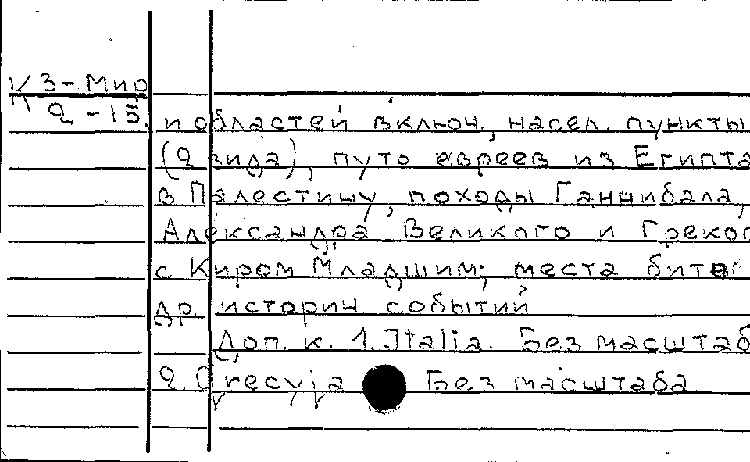 К 3-Мир
2-15.
и областей включ., насел. пункты
(2 вида), путь евреев из Египта
в Палестину, походы Ганнибала,
Александра Великого и Греков
с Киром Младшим; места битв
др. историч. событий
Доп. к. 1. Italia. Без масштаб
2. Grecyja Без масштаба